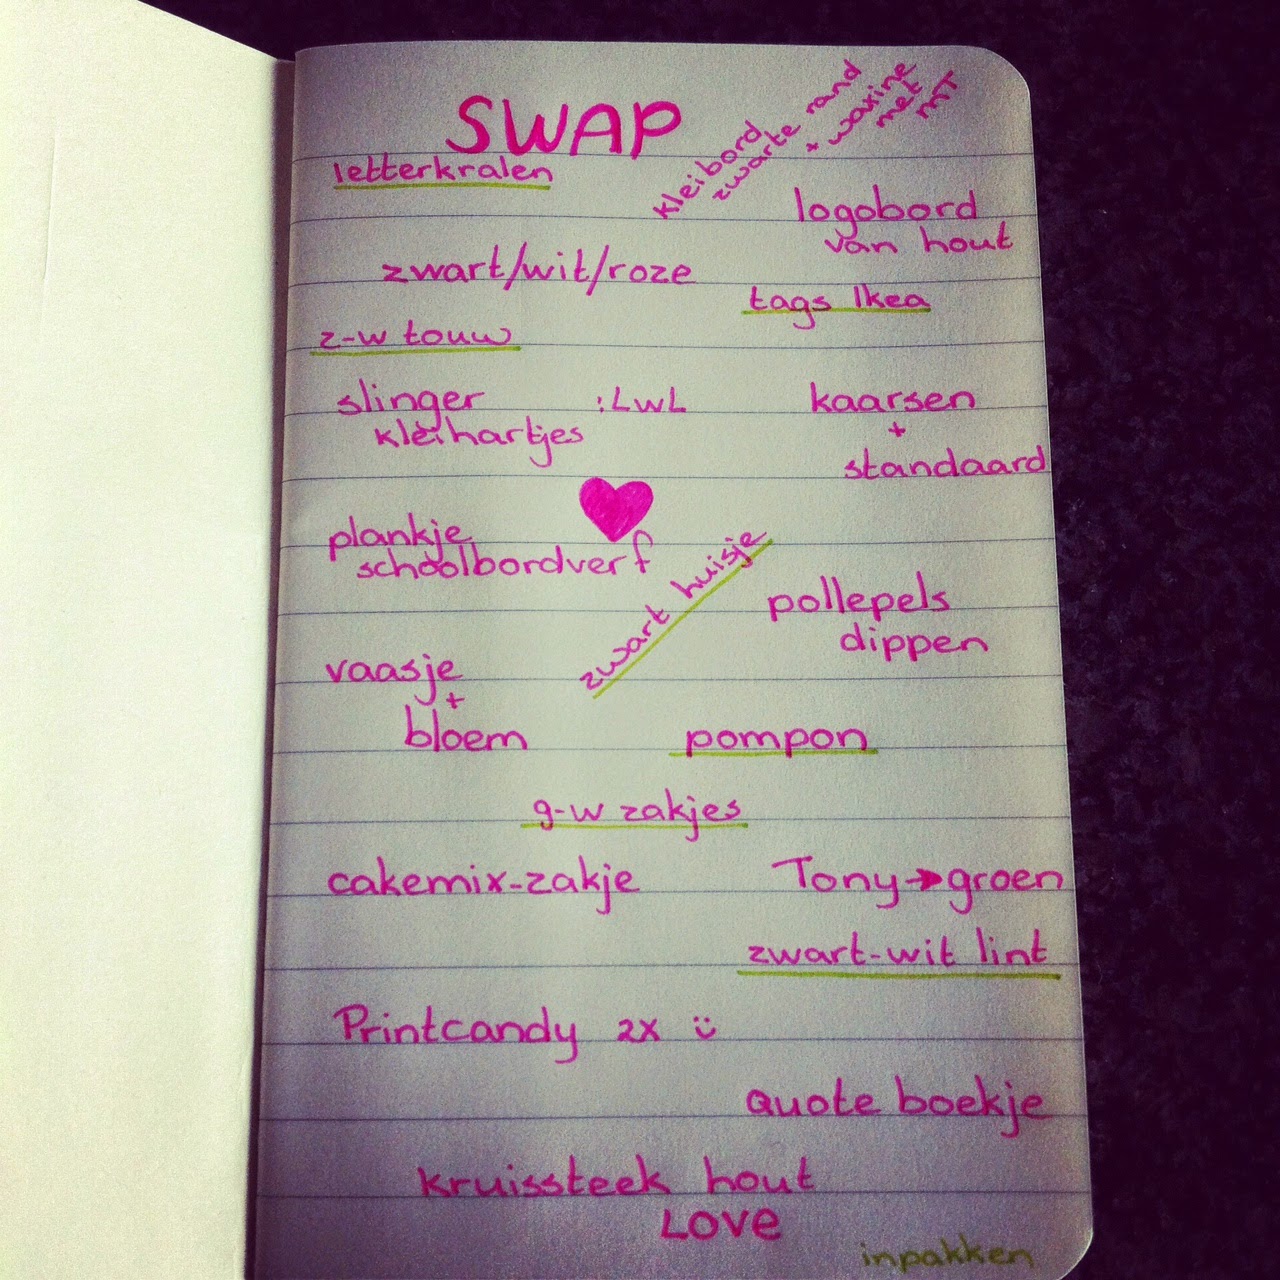 SWAP
kleibord
zwarte rand
+ waxine
met
MT
letterkralen
logobord
van hout
zwart/wit/roze
tags Ikea
z-w touw
slinger :LWL
kleihartjes
kaarsen
+
standaard
plankje
schoolbordverf
zwart huisje
pollepels
dippen
vaasje
+
bloem
pompon
g-w zakjes
cakemix-zakje
Tony→groen
zwart-wit lint
Printcandy 2x ü
Quote boekje
kruissteek hout
LOVE
inpakken